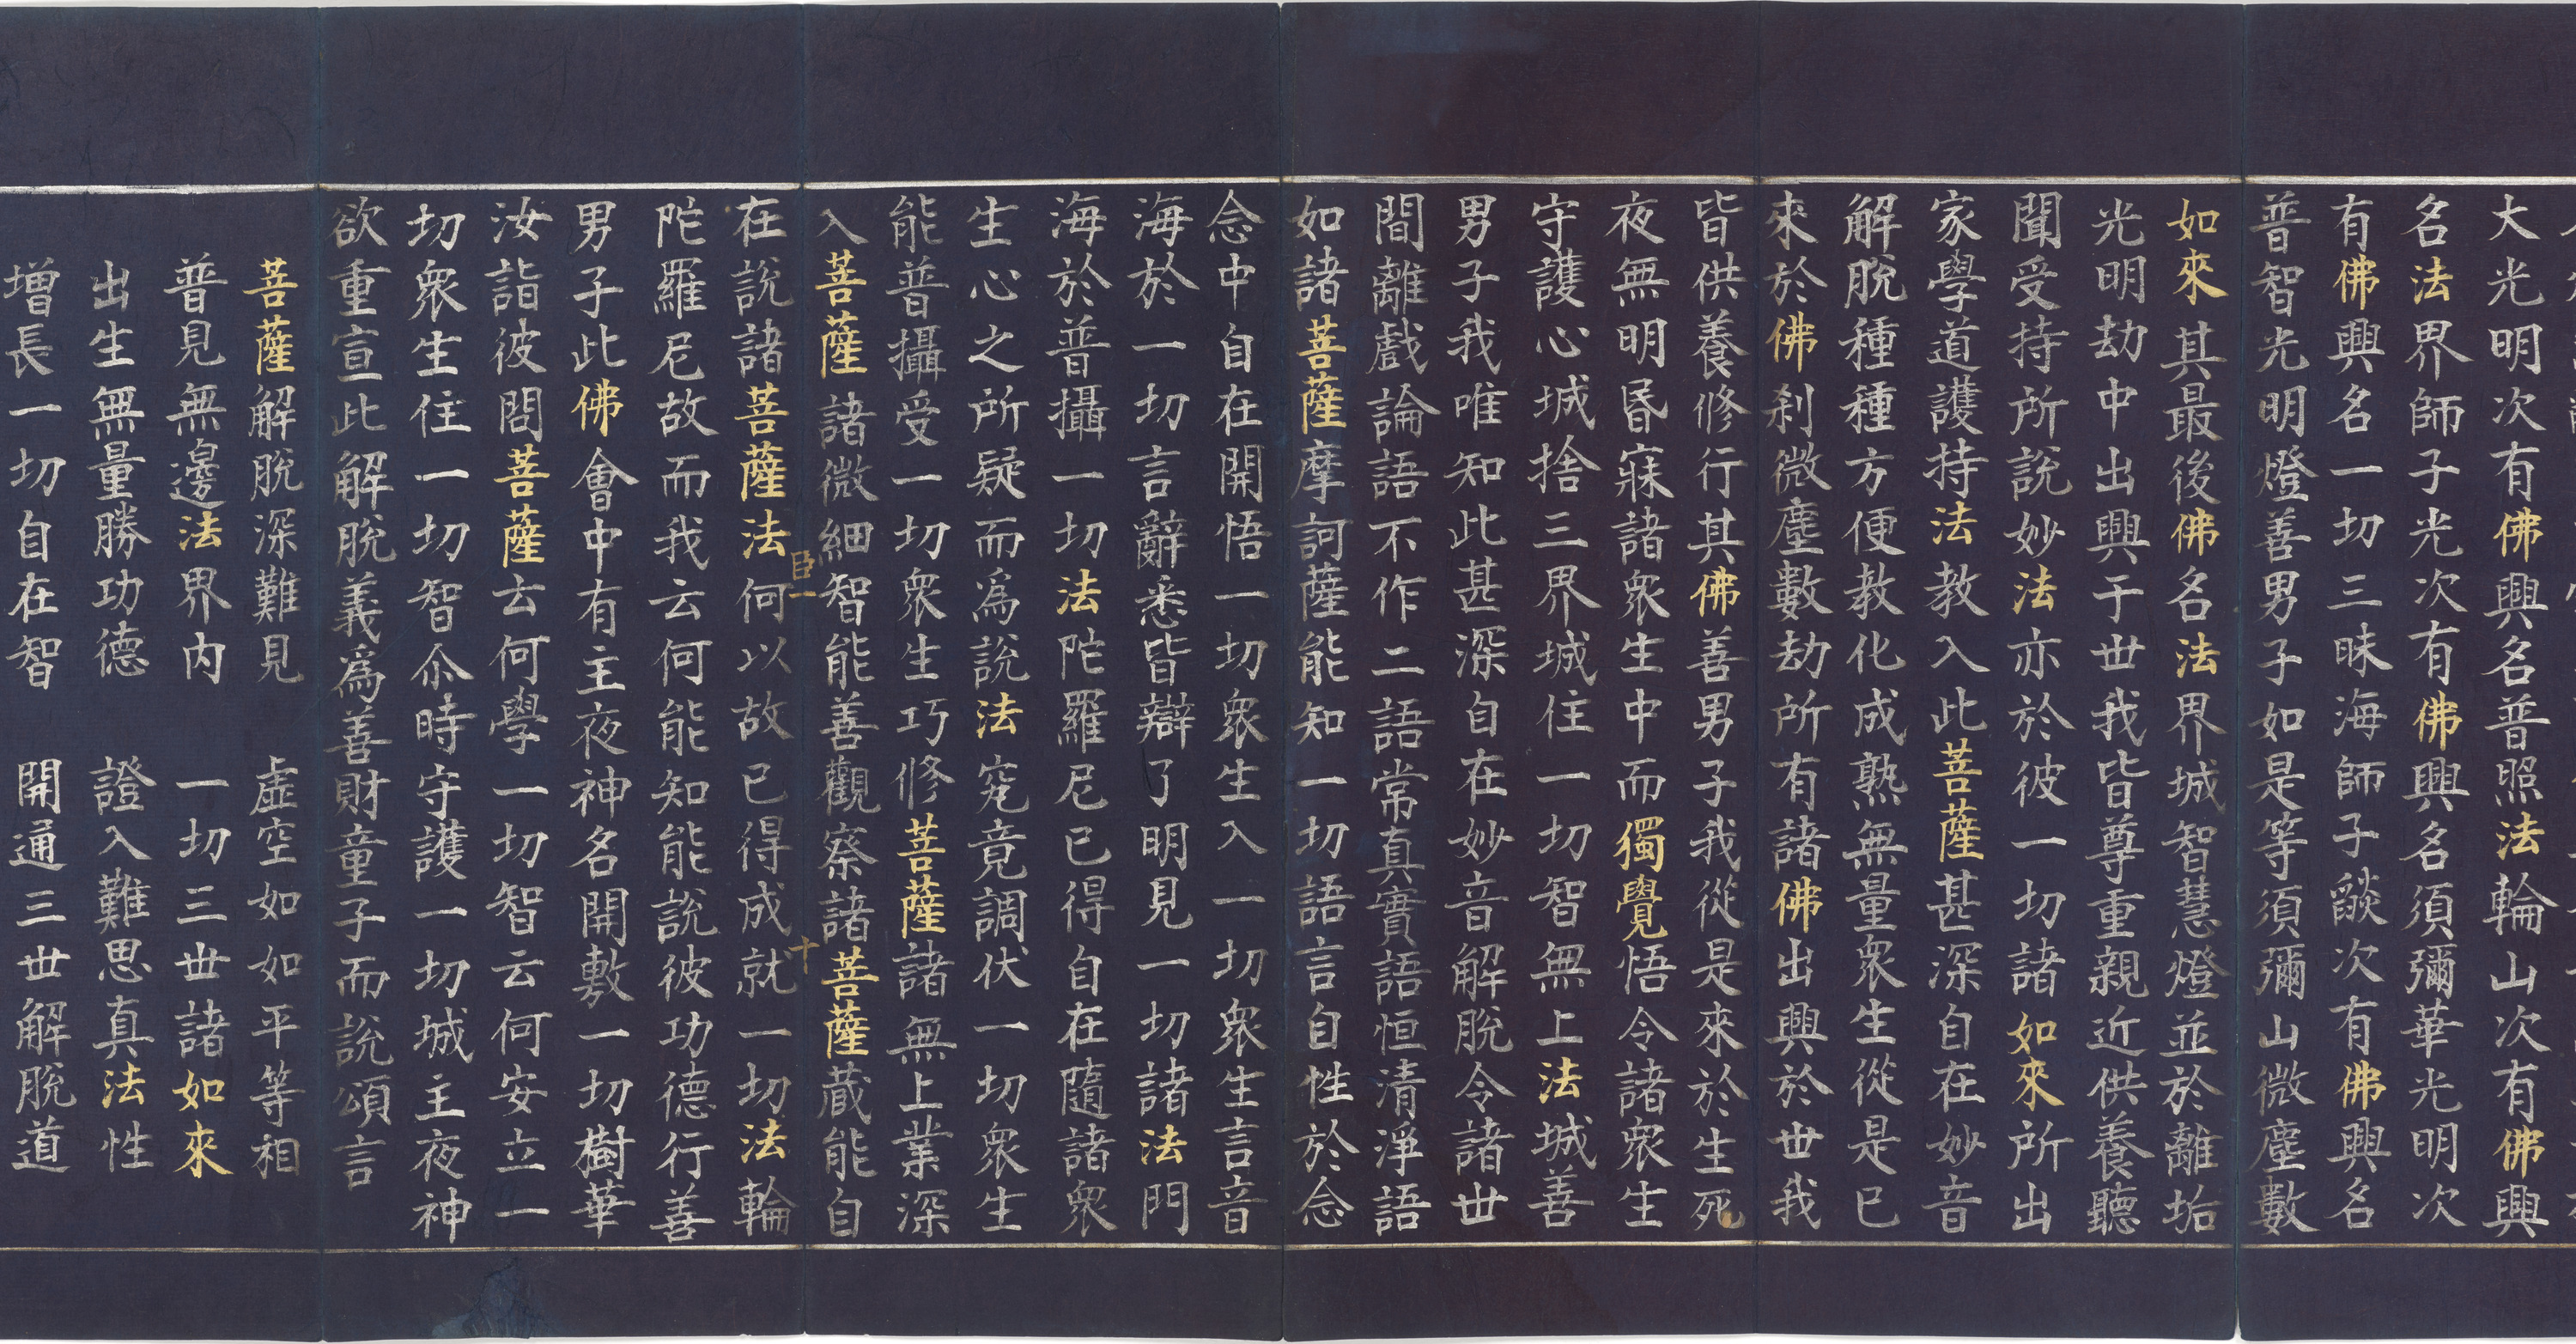 大光明次有佛興名普照法輪山次有佛興
名法界師子光次有佛興名須彌華光明次
有佛興名一切三昧海師子燄次有佛興名
普智光明燈善男子如是等須彌山微塵數
如來其最後佛名法界城智慧燈並於離垢
光明劫中出興于世我皆尊重親近供養聽
聞受持所說妙法亦於彼一切諸如來所出
家學道護持法教入此菩薩甚深自在妙音
解脫種種方便教化成熟無量衆生從是已
來於佛刹微塵數劫所有諸佛出興於世我
皆供養修行其佛善男子我從是來於生死
夜無明昬寐諸衆生中而獨覺悟令諸衆生
守護心城捨三界城住一切智無上法城善
男子我唯知此甚深自在妙音解脫令諸世
間離戲論語不作二語常真實語恒清淨語
如諸菩薩摩訶薩能知一切語言自性於念
念中自在開悟一切衆生入一切衆生言音
海於一切言辭悉皆辯了明見一切諸法門
海於普攝一切法陀羅尼已得自在隨諸衆
生心之所疑而爲說法究竟調伏一切衆生
能普攝受一切衆生巧修菩薩諸無上業深
入菩薩諸微細智能善觀察諸菩薩蔵能自
臣一 十
在說諸菩薩法何以故已得成就一切法輪
陀羅尼故而我云何能知能說彼功德行善
男子此佛會中有主夜神名開敷一切樹華
汝詣彼問菩薩云何學一切智云何安立一
切衆生住一切智尒時守護一切城主夜神
欲重宣此解脫義爲善財童子而說頌言
菩薩解脫深難見 虛空如如平等相
普見無邊法界内 一切三世諸如來
出生無量勝功德 證入難思真法性
增長一切自在智 開通三世解脫道